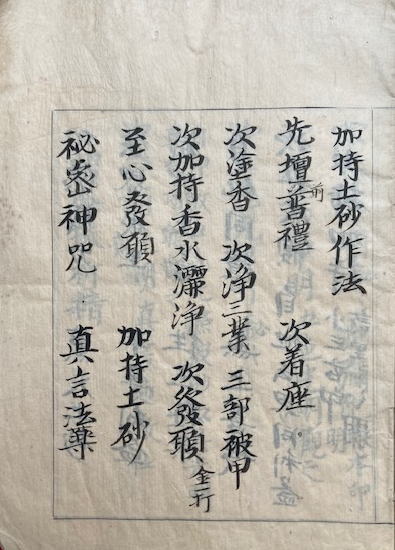 加持土砂作法
先壇前普禮　次着座。
次塗香　次浄三業　三部被甲
次加持香水灑浄　次發願金一打
至心發願　加持土砂
秘密神咒　真言法藥